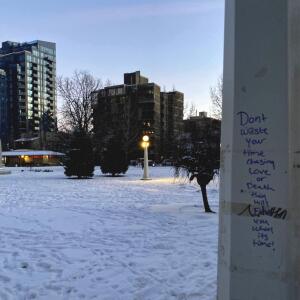 Dont
waste
your
time
chasing
Love
or
Death
they
will
you
when
its
time!